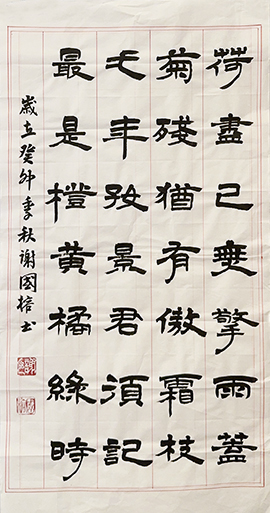 荷盡已無擎雨蓋
菊殘猶有傲霜枝
弌年好景君須記
最是橙黃橘綠時
歲在癸卯季秋謝國榕书